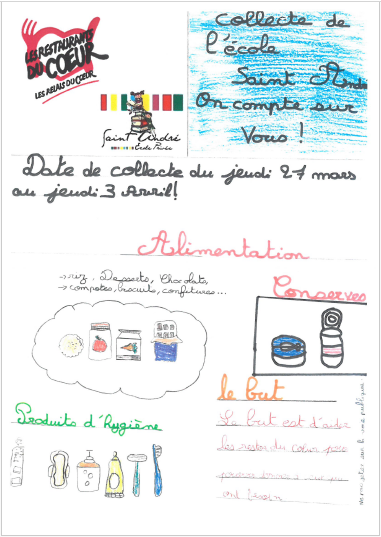 LES RESTAURANTS
DU CŒUR
LES RELAIS DU CŒUR
Saint André
École Privée
Collecte de
l'école
Saint André
On compte sur
Vous !
Date de collecte du jeudi 27 mars
au jeudi 3 Avril!
Alimentation
→ riz, Desserts, Chocolats,
→ compotes, biscuits, confitures...
Conserves
le but
Le but est d'aider
les restos du cœur pour
ont besoin
Produits d'hygiène